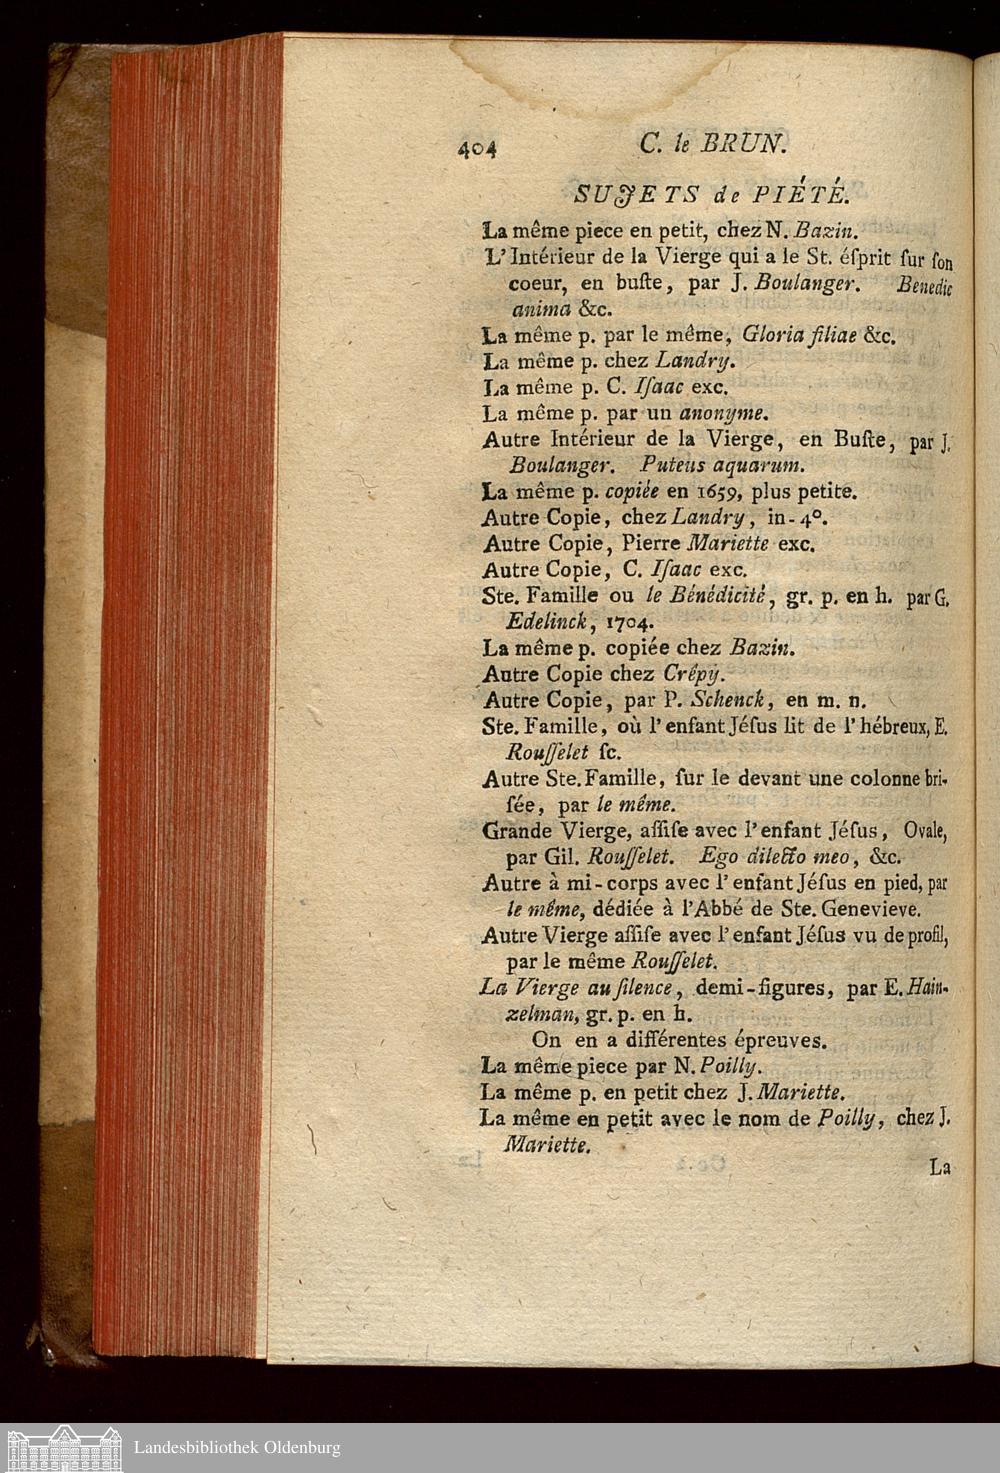 404 C. le BRUN.
SUJETS de PIÉTÉ.
La même piece en petit, chez N. Bazin.
L'Intérieur de la Vierge qui a le St. éſprit ſur ſon
coeur, en buſte, par J. Boulanger. Benedic
anima &c.
La même p. par le même, Gloria filiae &c.
La même p. chez Landry.
La même p. C. Iſaac exc.
La même p. par un anonyme.
Autre Intérieur de la Vierge, en Buſte, par J.
Boulanger. Puteus aquarum.
La même p. copiée en 1659, plus petite.
Autre Copie, chez Landry, in-4°.
Autre Copie, Pierre Mariette exc.
Autre Copie, C. Iſaac exc.
Ste. Famille ou le Bénédicité, gr. p. en h. par G.
Edelinck, 1704.
La même p. copiée chez Bazin.
Autre Copie chez Crêpy.
Autre Copie, par P. Schenck, en m. n.
Ste. Famille, où l'enfant Jéſus lit de l'hébreux, E.
Rouſſelet ſc.
Autre Ste. Famille, ſur le devant une colonne bri-
ſée, par le même.
Grande Vierge, aſſiſe avec l'enfant Jéſus, Ovale,
par Gil. Rouſſelet. Ego dilecto meo, &c.
Autre à mi-corps avec l'enfant Jéſus en pied, par
le même, dédiée à l'Abbé de Ste. Genevieve.
Autre Vierge aſſiſe avec l'enfant Jéſus vu de profil,
par le même Rouſſelet.
La Vierge au ſilence, demi-figures, par E. Hain-
zelman, gr. p. en h.
On en a différentes épreuves.
La même piece par N. Poilly.
La même p. en petit chez J. Mariette.
La même en petit avec le nom de Poilly, chez J.
Mariette.
La
Landesbibliothek Oldenburg